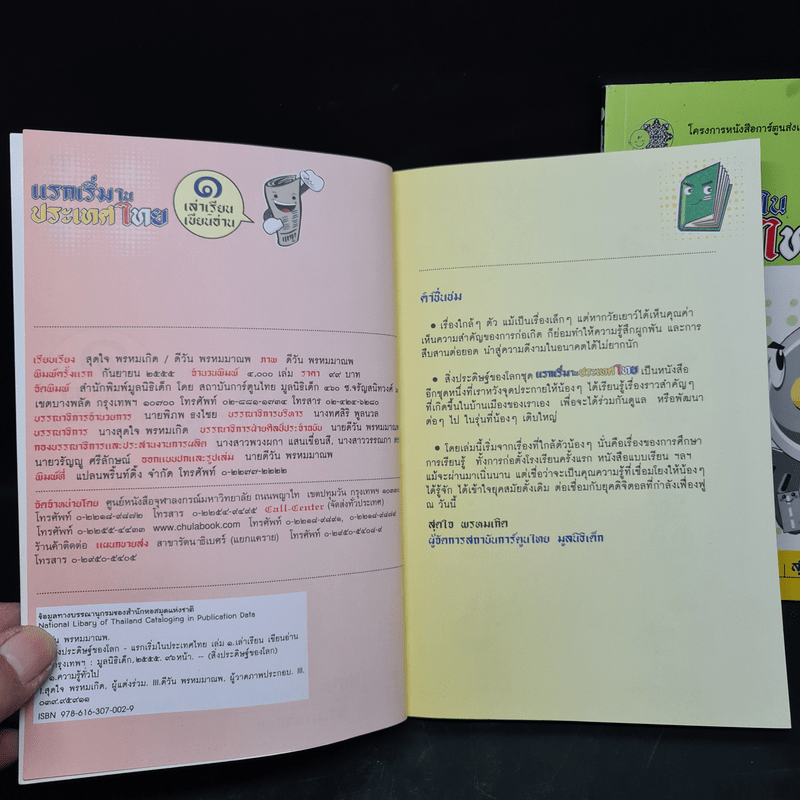 แรกเริ่มใน
ประเทศไทย
๑
เล่าเรียน
เขียนอ่าน
เรียบเรียง สุดใจ พรหมเกิด / ดีวัน พรหมมาณพ ภาพ ดีวัน พรหมมาณพ
พิมพ์ครั้งแรก กันยายน ๒๕๕๕ จำนวนพิมพ์ ๔,๐๐๐ เล่ม ราคา ๙๙ บาท
จัดพิมพ์ สำนักพิมพ์มูลนิธิเด็ก โดย สถาบันการ์ตูนไทย มูลนิธิเด็ก ๔๖๐ ซ.จรัญสนิทวงศ์
เขตบางพลัด กรุงเทพฯ ๑๐๗๐๐ โทรศัพท์ ๐๒-๘๘๑-๑๗๓๔ โทรสาร ๐๒-๔๒๔-๖๒๘๐
บรรณาธิการอำนวยการ นายพิภพ ธงไชย บรรณาธิการบริหาร นางทศสิริ พูลนวล
บรรณาธิการ นางสุดใจ พรหมเกิด บรรณาธิการฝ่ายศิลป์ประจำฉบับ นายดีวัน พรหมมาณพ
กองบรรณาธิการและประสานงานการผลิต นางสาวพวงผกา แสนเขื่อนสี, นางสาววรรณภา
นายวรัญญู ศรีลักษณ์ ออกแบบปกและรูปเล่ม นายดีวัน พรหมมาณพ
พิมพ์ที่ แปลนพริ้นท์ติ้ง จำกัด โทรศัพท์ ๐-๒๒๗๗-๒๒๒๒
จัดจำหน่ายโดย ศูนย์หนังสือจุฬาลงกรณ์มหาวิทยาลัย ถนนพญาไท เขตปทุมวัน กรุงเทพฯ ๑๐๓๓๐
โทรศัพท์ ๐-๒๒๑๘-๙๘๗๒ โทรสาร ๐-๒๒๕๔-๙๔๙๕ Call-Center (จัดส่งทั่วประเทศ)
โทรศัพท์ ๐-๒๒๕๕-๔๔๓๓ www.chulabook.com โทรศัพท์ ๐-๒๒๑๘-๙๘๙๑, ๐-๒๒๑๘-๙๘๗๔
ร้านค้าติดต่อ แผนกขายส่ง สาขารัตนาธิเบศร์ (แยกแคราย) โทรศัพท์ ๐-๒๙๕๐-๕๔๐๘-๙
โทรสาร ๐-๒๙๕๐-๕๔๐๕
ข้อมูลทางบรรณานุกรมของสำนักหอสมุดแห่งชาติ
National Libary of Thailand Cataloging in Publication Data
ดีวัน พรหมมาณพ.
สิ่งประดิษฐ์ของโลก - แรกเริ่มในประเทศไทย เล่ม ๑.เล่าเรียน เขียนอ่าน
กรุงเทพฯ : มูลนิธิเด็ก,๒๕๕๕. ๙๖หน้า. -- (สิ่งประดิษฐ์ของโลก)
๑.ความรู้ทั่วไป
I.สุดใจ พรหมเกิด, ผู้แต่งร่วม. III.ดีวัน พรหมมาณพ, ผู้วาดภาพประกอบ. III.
๐๓๙.๙๕๙๑๑
ISBN 978-616-307-002-9
คำชื่นชม
● เรื่องใกล้ๆ ตัว แม้เป็นเรื่องเล็กๆ แต่หากวัยเยาว์ได้เห็นคุณค่า
เห็นความสำคัญของการก่อเกิด ก็ย่อมทำให้ความรู้สึกผูกพัน และการ
สืบสานต่อยอด นำสู่ความดีงามในอนาคตได้ไม่ยากนัก
● สิ่งประดิษฐ์ของโลกชุด แรกเริ่มในประเทศไทย เป็นหนังสือ
อีกชุดหนึ่งที่เราหวังจุดประกายให้น้องๆ ได้เรียนรู้เรื่องราวสำคัญๆ
ที่เกิดขึ้นในบ้านเมืองของเราเอง เพื่อจะได้ร่วมกันดูแล หรือพัฒนา
ต่อๆ ไป ในรุ่นที่น้องๆ เติบใหญ่
● โดยเล่มนี้เริ่มจากเรื่องที่ใกล้ตัวน้องๆ นั่นคือเรื่องของการศึกษา
การเรียนรู้ ทั้งการก่อตั้งโรงเรียนครั้งแรก หนังสือแบบเรียน ฯลฯ
แม้จะผ่านมาเนิ่นนาน แต่เชื่อว่าจะเป็นคุณความรู้ที่เชื่อมโยงให้น้องๆ
ได้รู้จัก ได้เข้าใจยุคสมัยดั้งเดิม ต่อเชื่อมกับยุคดิจิตอลที่กำลังเฟื่องฟู
ณ วันนี้
สุดใจ พรหมเกิด
ผู้จัดการสถาบันการ์ตูนไทย มูลนิธิเด็ก
โครงการหนังสือการ์ตูนส่งเ